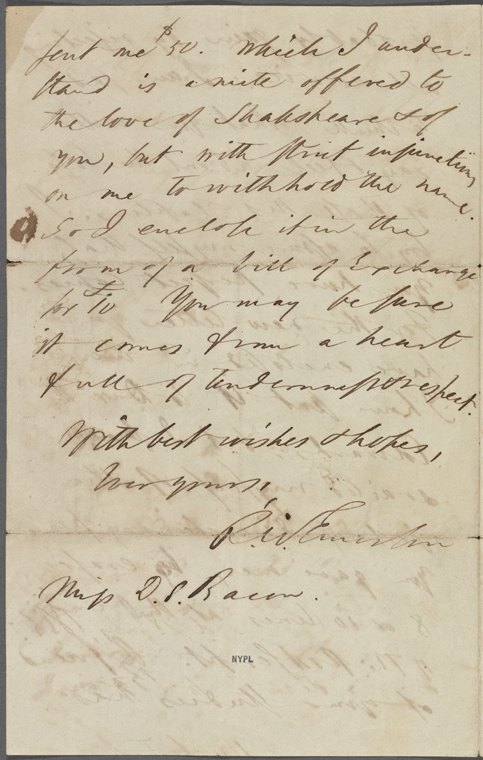 sent me $50. which I under-
stand is a mite offered to
the love of Shakspeare & of
you, but with strict injunctions
on me to withhold the name.
So I enclose it in the
form of a bill of Exchange
for £10 You may be sure
it comes from a heart
full of tenderness & respect.
With best wishes & hopes,
Ever yours,
R. W. Emerson
Miss D. S. Bacon.
NYPL